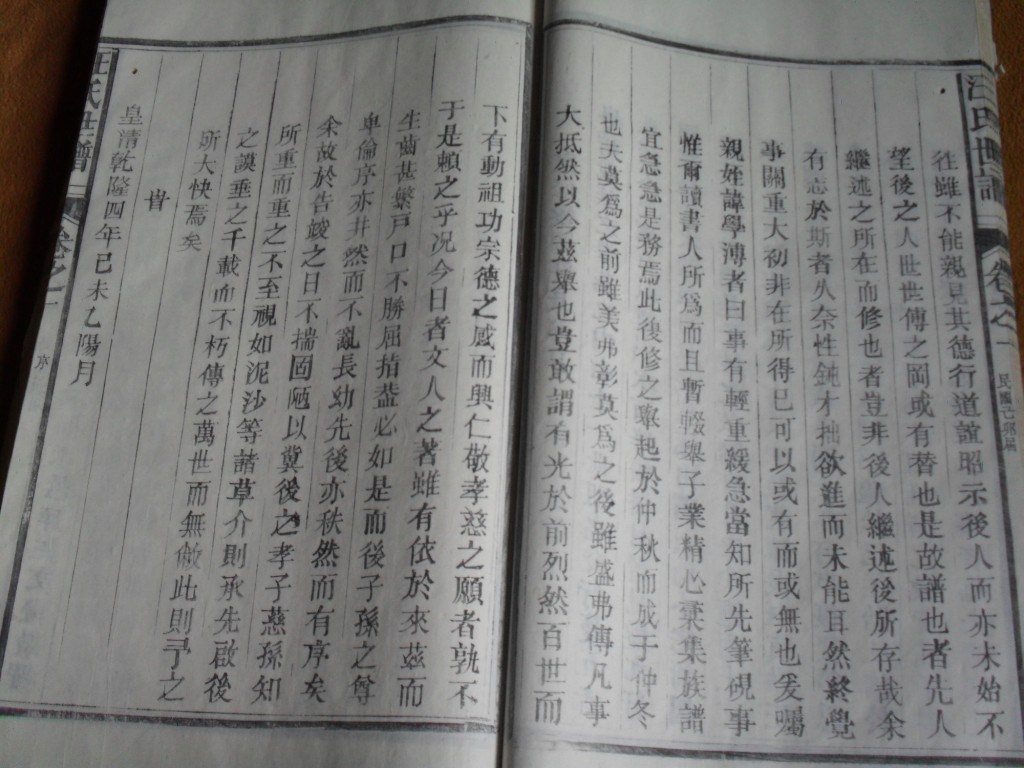 汪氏世譜
卷之一
往雖不能親見其德行道誼昭示後人而亦未始不
望後之人世世傳之罔或有替也是故譜也者先人
繼述之所在而修也者豈非後人繼述後所存哉余
有志於斯者久奈性鈍才拙欲進而未能且然終覺
事關重大初非在所得已可以或有而或無也爰囑
親姪諱學溥者曰事有輕重緩急當知所先筆硯事
惟爾讀書人所為而且暫輟舉子業精心裒集族譜
宜急急是務焉此後修之舉起於仲秋而成于仲冬
也夫莫為之前雖美弗彰莫為之後雖盛弗傳凡事
大抵然以今茲舉也豈敢謂有光於前烈然百世而
下有動祖功宗德之感而興仁敬孝慈之願者孰不
于是賴之乎況今日者文人之著雖有依於來茲而
生齒甚繁戶口不勝屈指蓋必如是而後子孫之尊
卑倫序亦井然而不亂長幼先後亦秩然而有序矣
余故於告竣之日不揣固陋以冀後之孝子慈孫知
所重而重之不至視如泥沙等諸草介則承先啟後
之謨垂之千載而不朽傳之萬世而無敝此則予之
所大快焉矣
皇清乾隆四年己未乙陽月
汪氏世譜
卷之一